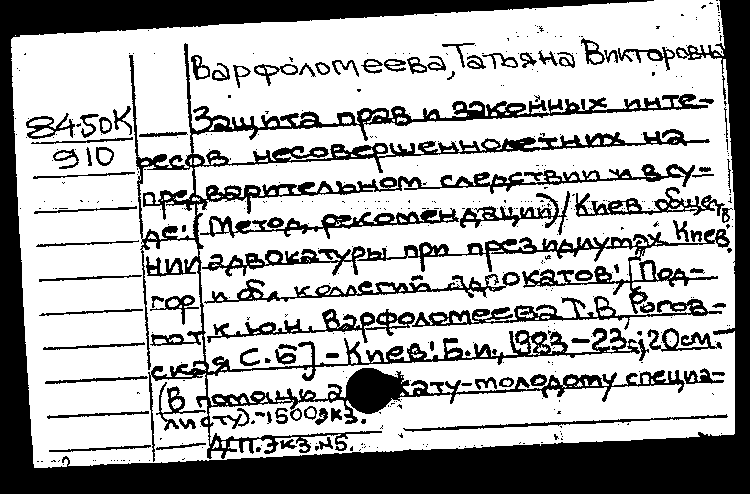 Варфоломеева, Татьяна Викторовна
84-50К
910
Защита прав и законных инте-
ресов несовершеннолетних на
предварительном следствии и в су-
де: (Метод. рекомендации) / Киев. обществ
НИИ адвокатуры при президиумах Киев.
гор и обл. коллегий адвокатов; [Под-
гот. к.ю.н. Варфоломеева Т.В., Рогов-
ская С.Б]. - Киев: Б.и., 1983 - 23с; 20см. -
(В помощь кату-молодому специа-
листу). - 1500экз.
ДСП. Экз. №5.